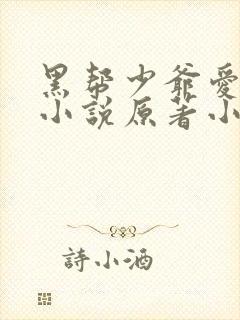 黑帮少爷愛
小说原著小
詩小酒